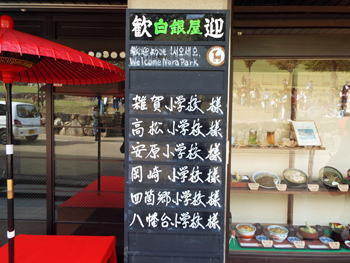 歓白銀屋迎
歓迎ようこそ 어서오세요
Welcome Nara Park
雑賀小学校 様
高松小学校 様
安原小学校 様
岡崎小学校 様
四箇郷小学校 様
八幡台小学校 様